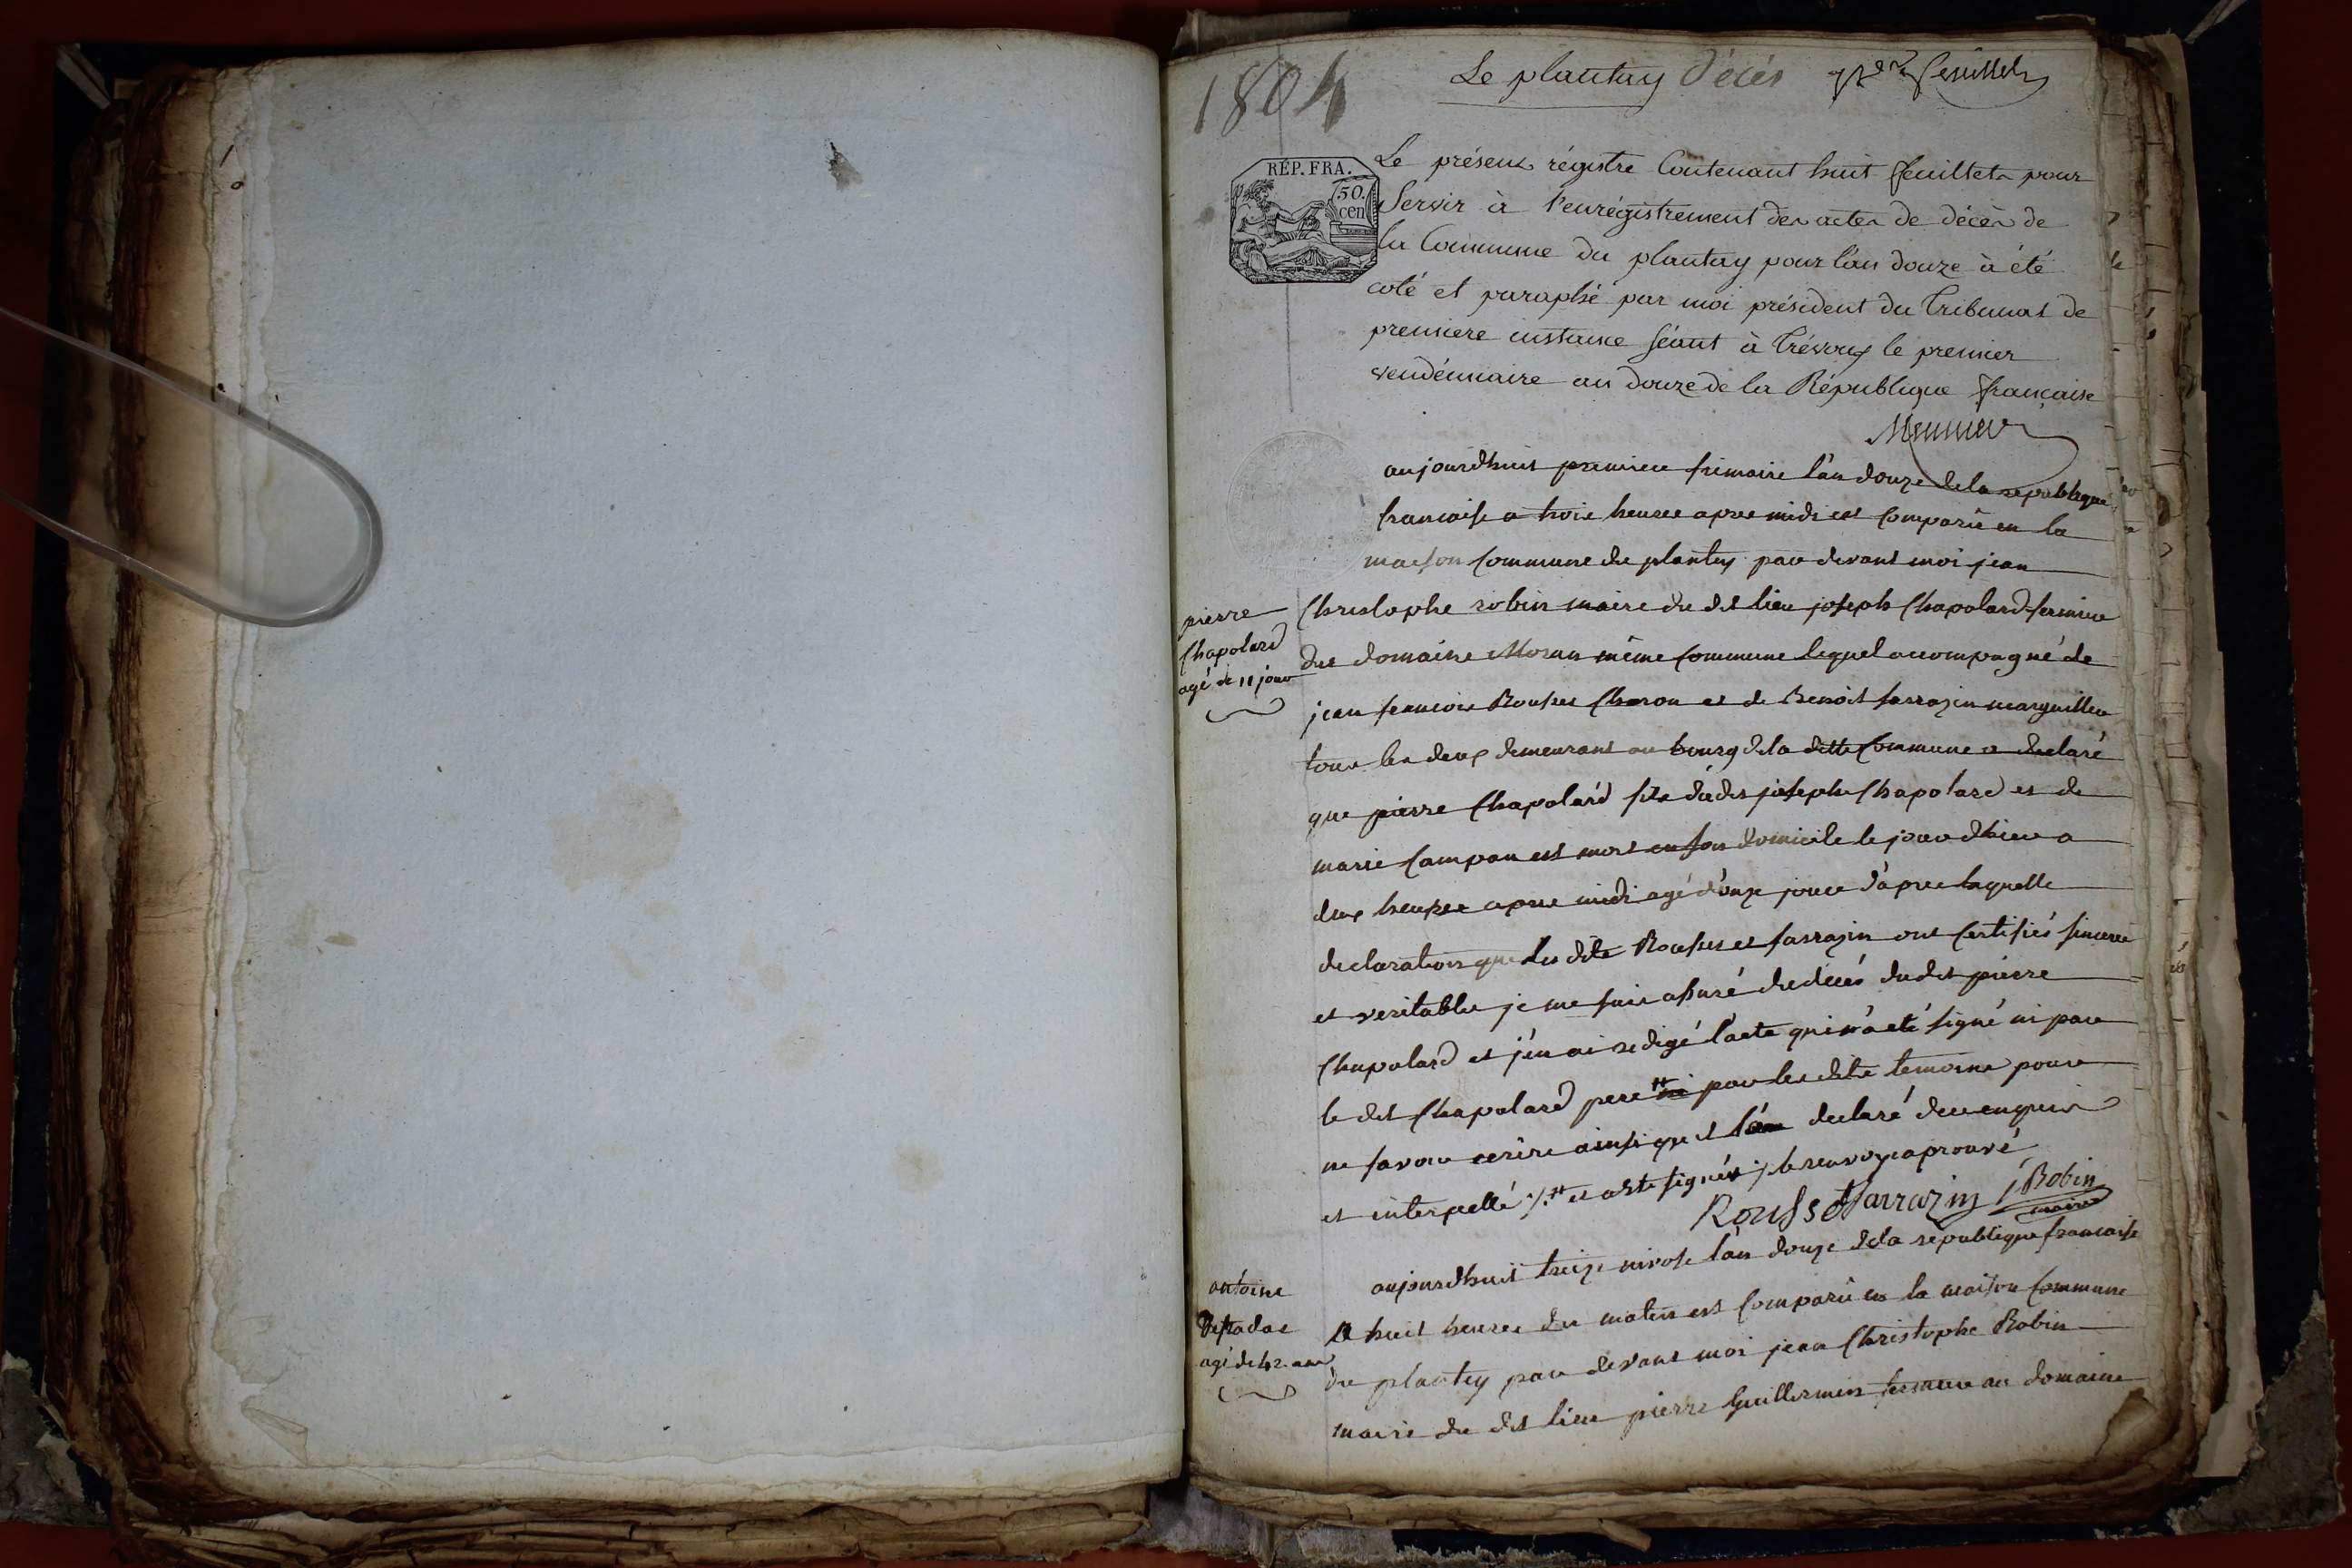 1804
Le plantay Décès
1er feuillet
RÉP. FRA.
50.
cen
Le présent régistre Contenant huit feuillets pour
Servir à l'enrégistrement des actes de décès de
la Commune du plantay pour l'an douze à été
coté et paraphé par moi président du Tribunal de
premiere instance séant à Trévoux le premier
vendémiaire an douze de la République française
Meunier
aujourdhuit premiere frimaire l'an douze dela republique
francaise a trois heures apres midi est Comparû en la
maison Commune du plantey par devant moi jean
Christophe robin maire du dit lieu joseph Chapolard fermier
du domaine Moran même Commune lequel accompagné de
jean francois Rousset Charon et de Benoit sarrazin marguillier
tous les deux demeurant au bourg dela ditte Commune a declaré
que pierre Chapolard fils dudit joseph Chapolard et de
marie Campan est mort en son domicile le jour dhier a
deux heures apres midi agé d'onze jours d'apres laquelle
declaration que les dits Rousset et sarrazin ont Certifiés sincere
et veritable je me suis assuré du décés du dit pierre
Chapolard et j'en ai redigé l'acte qui n'a eté signé ni par
le dit Chapolard pere ni par les dits temoins pour
ne savoir ecrire ainsi que declaré de enquis
et interpellé et ont signés le renvoye aprouvé
Rousset Sarrazin j Robin
maire
pierre
Chapolard
agé de 11 jours
aujourdhuit treize nivose l'an douze dela republique francaise
a huit heures du matin est Comparû en la maison Commune
du plantey par devant moi jean Christophe Robin
maire du dit lieu pierre Guillermin fermier au domaine
antoine
agé de 42 ans